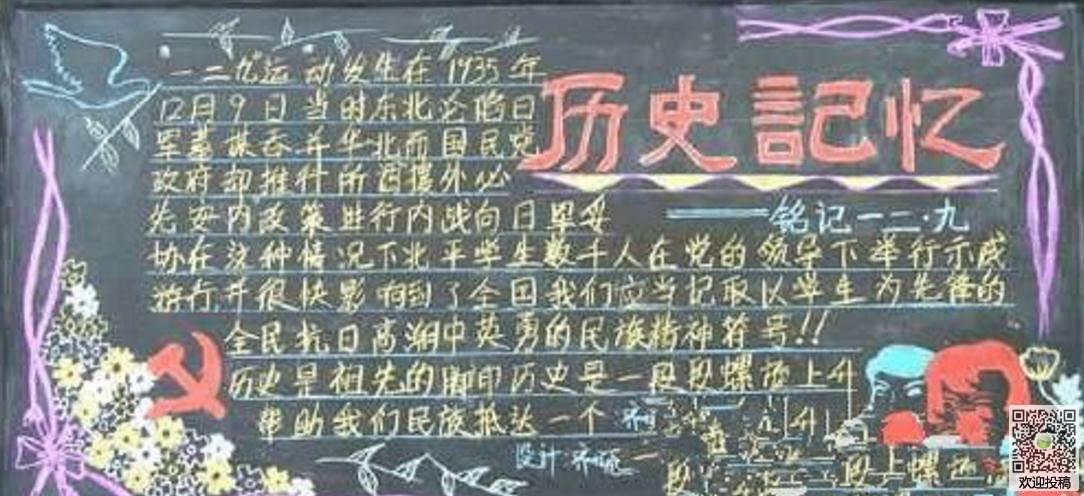 历史記忆
——铭记一二·九
一二九运动发生在1935年
12月9日当时东北沦陷日
军蓄谋吞并华北而国民党
政府却推行所谓攘外必
先安内政策进行内战向日军妥
协在这种情况下北平学生数千人在党的领导下举行示威
游行并很快影响到了全国我们应当记取以学生为先锋的
全民抗日高潮中英勇的民族精神符号!!
历史是祖先的脚印历史是一段段螺旋上升
帮助我们民族抵达一个
设计
段上螺旋
欢迎投稿